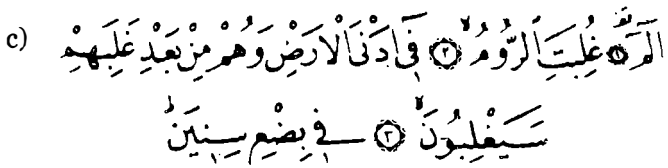 c) الٓمٓ ۚ ﴿١﴾ غُلِبَتِ ٱلرُّومُ ۙ ﴿٢﴾ فِىٓ أَدْنَى ٱلْأَرْضِ وَهُمْ مِنْ بَعْدِ غَلَبِهِمْ
سَيَغْلِبُونَ ۙ ﴿٣﴾ فِى بِضْعِ سِنِينَ ۗ